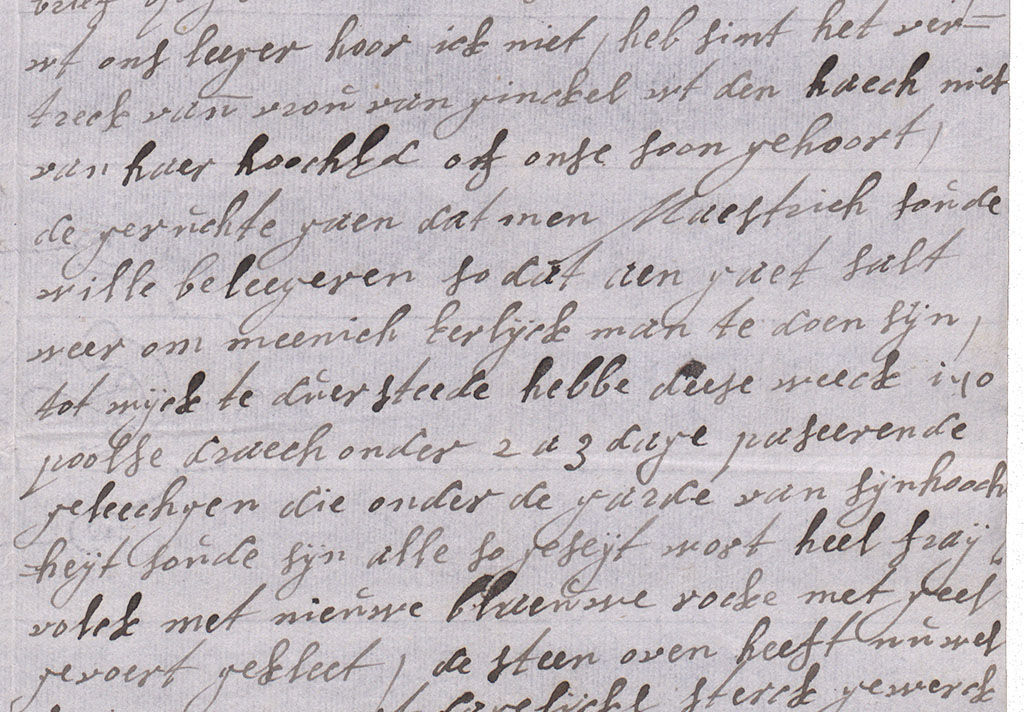 wt ons leeger hoor ick niet, heb sint het ver=
treck van vrou van ginckel wt den haech niet
van haer hoochh of onse soon gehoort,
de geruchte gaen dat men Maestrich soude
wille beleegeren so dat aen gaet salt
weer om meenich kerlijck man te doen sijn,
tot wijck te duersteede hebbe deese weeck
poolse draechonder 2 a 3 dage paseerende
geleechgen die onder de garde van sijnhooch
heijt soude sijn alle so geseijt wort heel fraij
volck met nieuwe blaeuwe rocke met geel
gevoert gekleet, de steen oven heeft nu wel
sterck gewerck